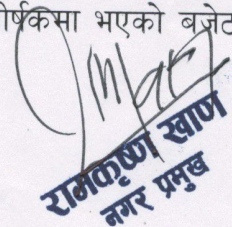 र्षकमा भएको बजेट
रामकृष्ण खाण
नगर प्रमुख